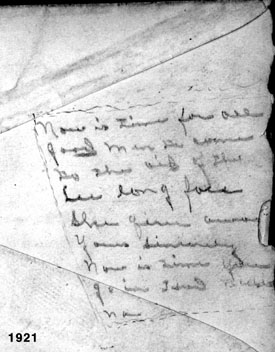 Now is time for all
good men to come
to the aid of the
See long face
She give
Yours sincerely
Now is time
go in
Now
1921